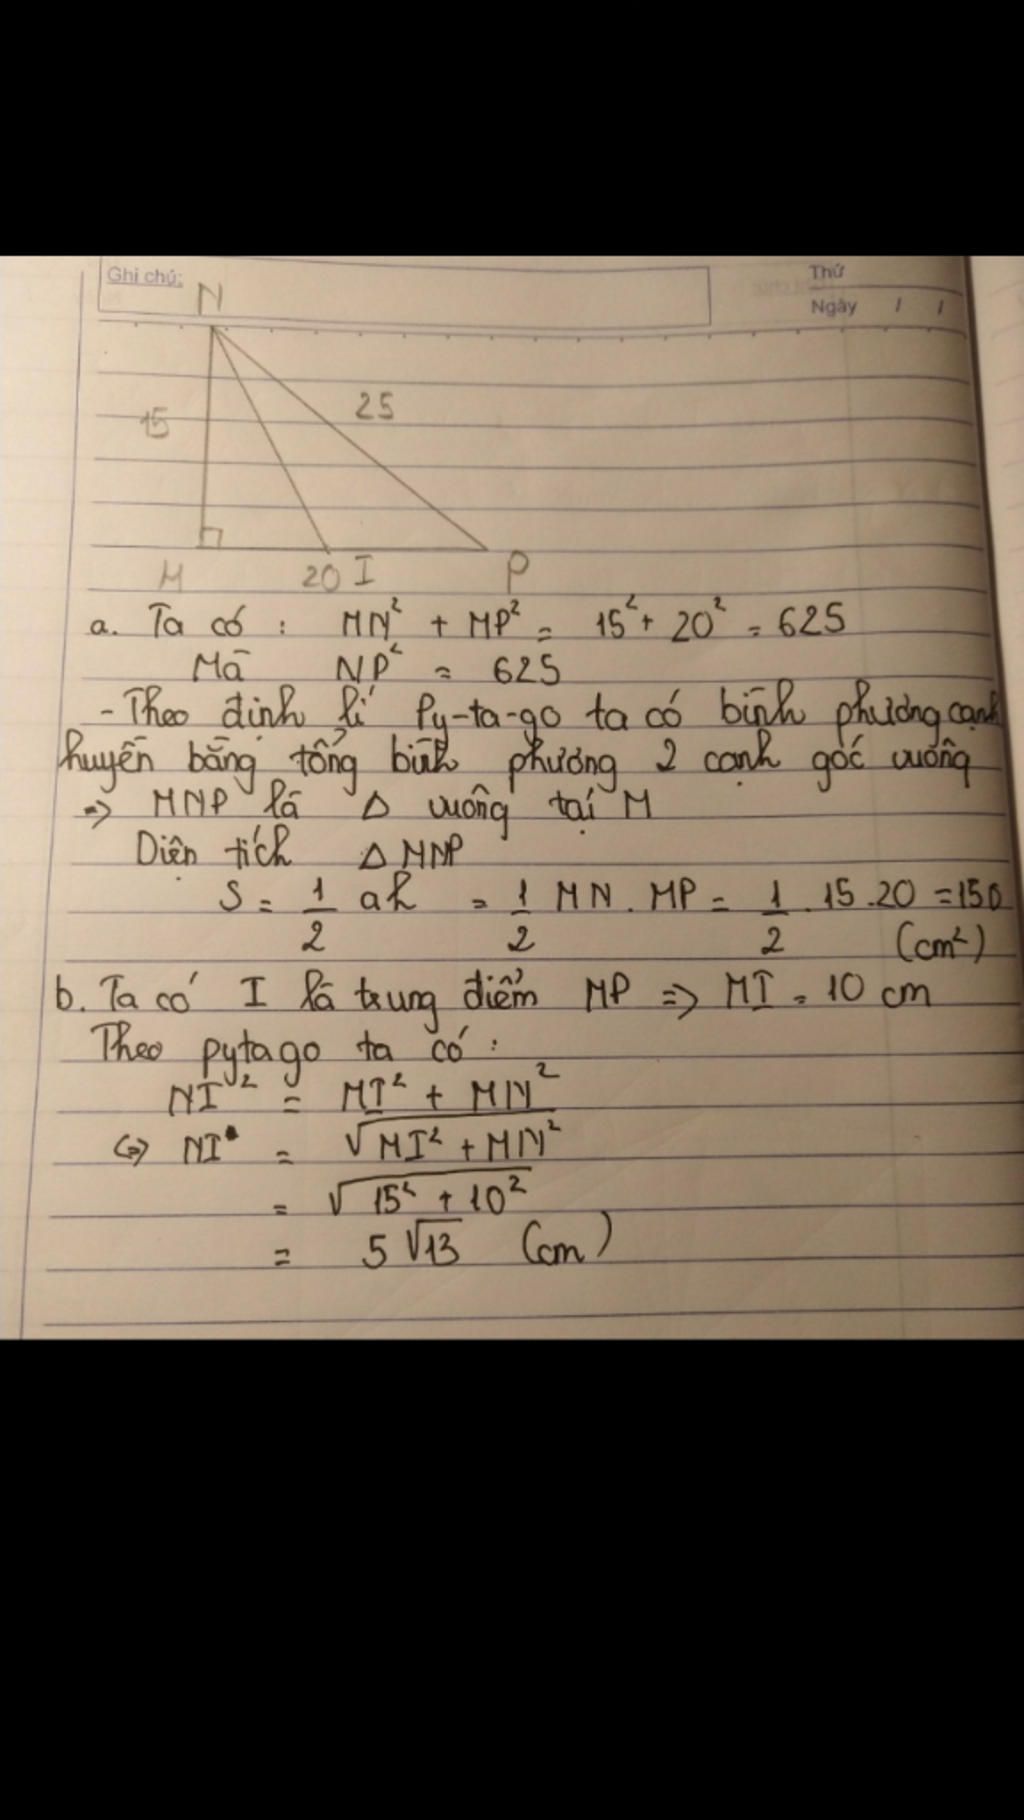 Ghi chú:
Thứ
Ngày / /
N
15
25
M
20 I
P
a. Ta có : MN² + MP² = 15² + 20² = 625
Mà NP² = 625
- Theo định lí Py-ta-go ta có bình phương cạnh
huyền bằng tổng bình phương 2 cạnh góc vuông
=> MNP là Δ vuông tại M
Diện tích Δ MNP
S = 1/2 ah = 1/2 MN . MP = 1/2 . 15 . 20 = 150
(cm²)
b. Ta có I là trung điểm MP => MI = 10 cm
Theo pytago ta có :
NI² = MI² + MN²
<=> NI = √MI² + MN²
= √15² + 10²
= 5√13 (cm)